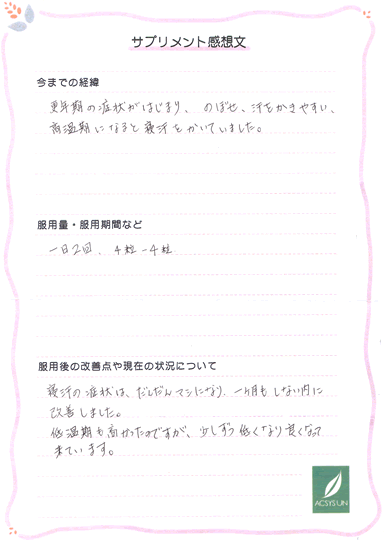 サプリメント感想文
今までの経緯
更年期の症状がはじまり、のぼせ、汗をかきやすい、
高温期になると寝汗をかいていました。
服用量・服用期間など
一日2回、4粒-4粒
服用後の改善点や現在の状況について
寝汗の症状は、だんだんマシになり、一ヶ月もしない内に
改善しました。
低温期も高かったのですが、少しずつ低くなり良くなって
来ています。
ACSYSUN